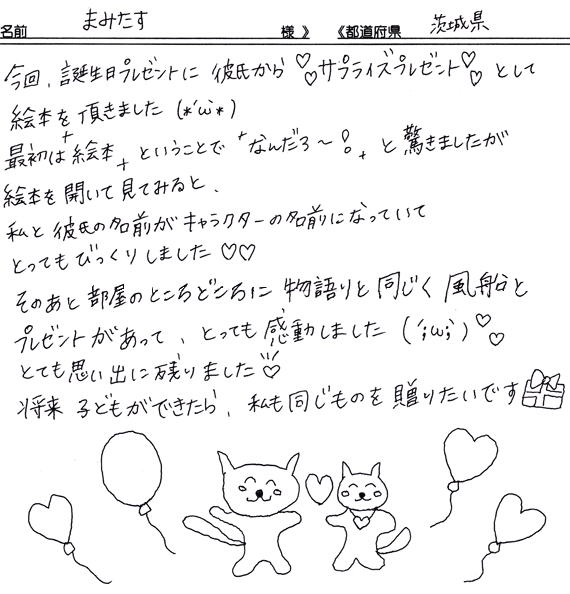 名前 まみたす 様 》 《都道府県 茨城県
今回、誕生日プレゼントに 彼氏から ♡♡サプライズプレゼント♡♡ として
絵本を頂きました (*´ω`*)
最初は +絵本+ ということで +なんだろ〜!+ と驚きましたが
絵本を開いて見てみると、
私と彼氏の名前がキャラクターの名前になっていて
とってもびっくりしました♡♡
そのあと部屋のところどころに 物語りと同じく 風船と
プレゼントがあって、とっても感動しました (´;ω;`)♡♡
とても思い出に残りました♡
将来 子どもができたら、私も同じものを贈りたいです